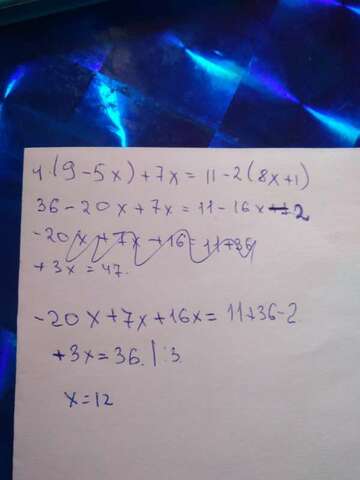 4·(9-5x)+7x=11-2(8x+1)
36-20x+7x=11-16x-2
-20x+7x+16=11+36
+3x=47.
-20x+7x+16x=11+36-2
+3x=36. |:3
x=12